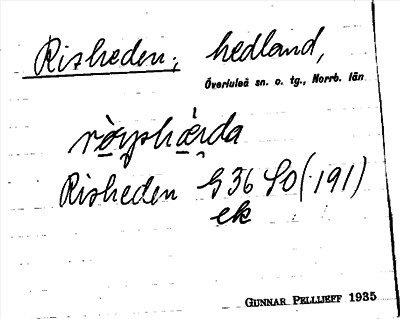 Risheden, hedland,
Överluleå sn. o. tg., Norrb. län
Risheden G 36 SO (191)
ek
GUNNAR PELLIJEFF 1935